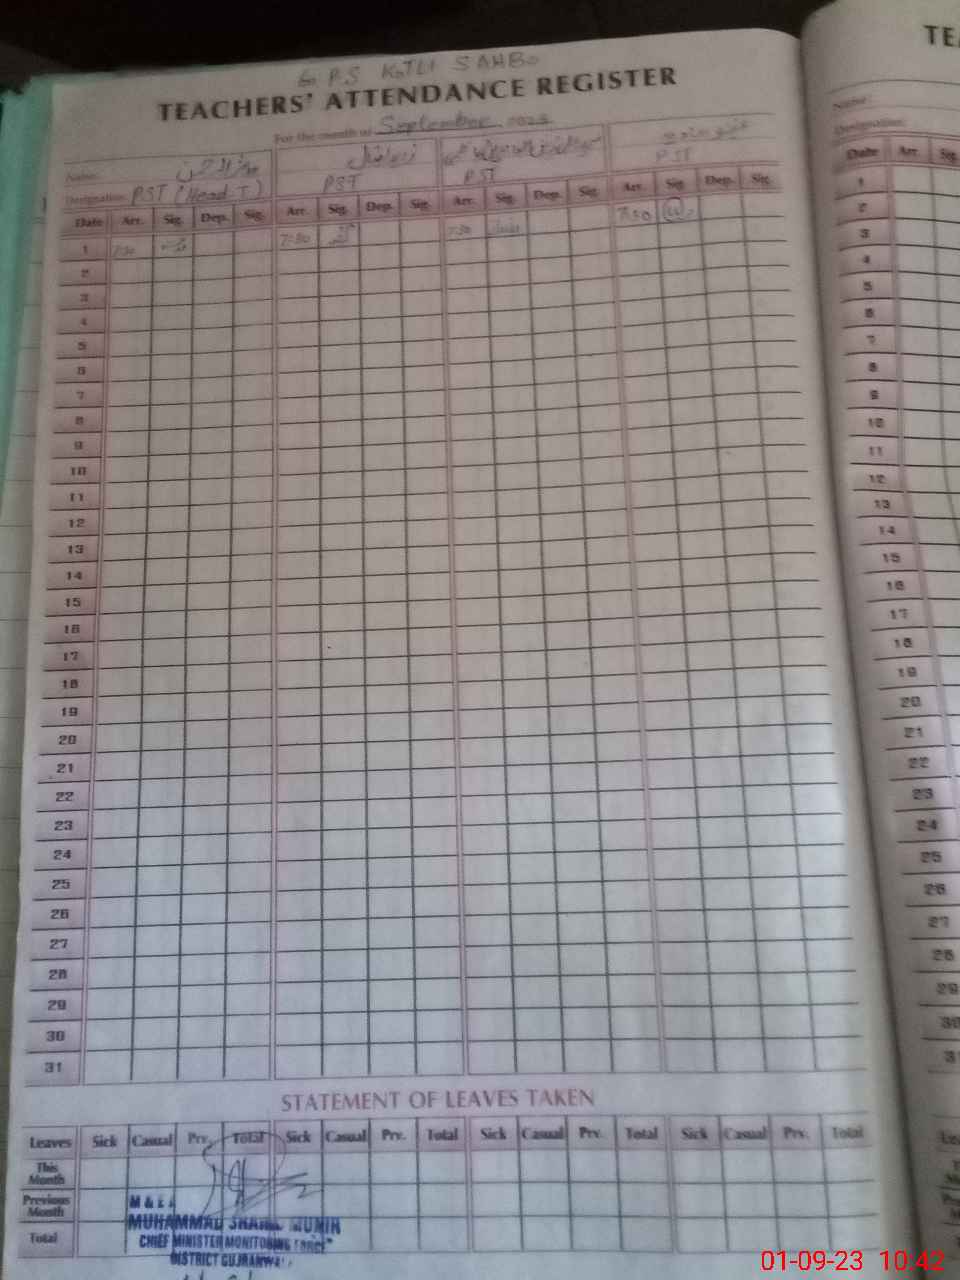 G. P.S KOTLI SAHBO
TEACHERS' ATTENDANCE REGISTER
For the month of September 2023
Name:
Designation: PST (Head-T) PST PST PST
Date Arr. Sig. Dep. Sig. Arr. Sig. Dep. Sig. Arr. Sig. Dep. Sig. Arr. Sig. Dep. Sig.
1 7:30 7:30 7:30 7:30
2
3
4
5
6
7
8
9
10
11
12
13
14
15
16
17
18
19
20
21
22
23
24
25
26
27
28
29
30
31
STATEMENT OF LEAVES TAKEN
Leaves Sick Casual Prv. Total Sick Casual Prv. Total Sick Casual Prv. Total Sick Casual Prv. Total
This Month
Previous Month
Total
M & E A
MUHAMMAD MUNIR
CHIEF MINISTER MONITORING FORCE
DISTRICT GUJRANWALA
TE
Name:
Designation:
Date Arr. Sig.
1
2
3
4
5
6
7
8
9
10
11
12
13
14
15
16
17
18
19
20
21
22
23
24
25
26
27
28
29
30
3
01-09-23 10:42